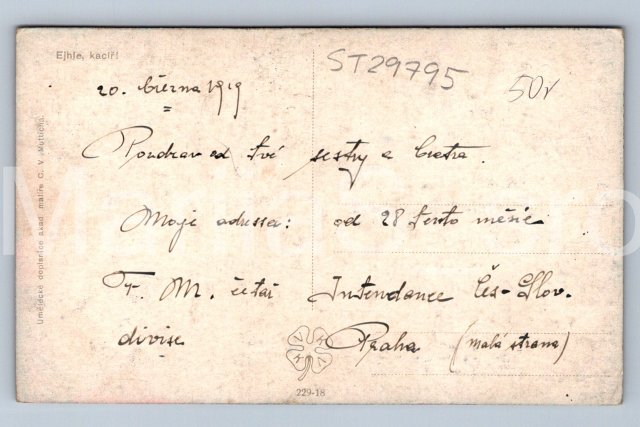 Ejhle, kacíři
ST29795
50,-
20. března 1919
Pozdrav od tvé sestry a bratra.
Moje adressa: od 28 tento měsíc
F. M. četař Intendance Čes-Slov.
divise Praha (malá strana)
229-18
Umělecké dopisnice akad. malíře C. V. Mutticha.